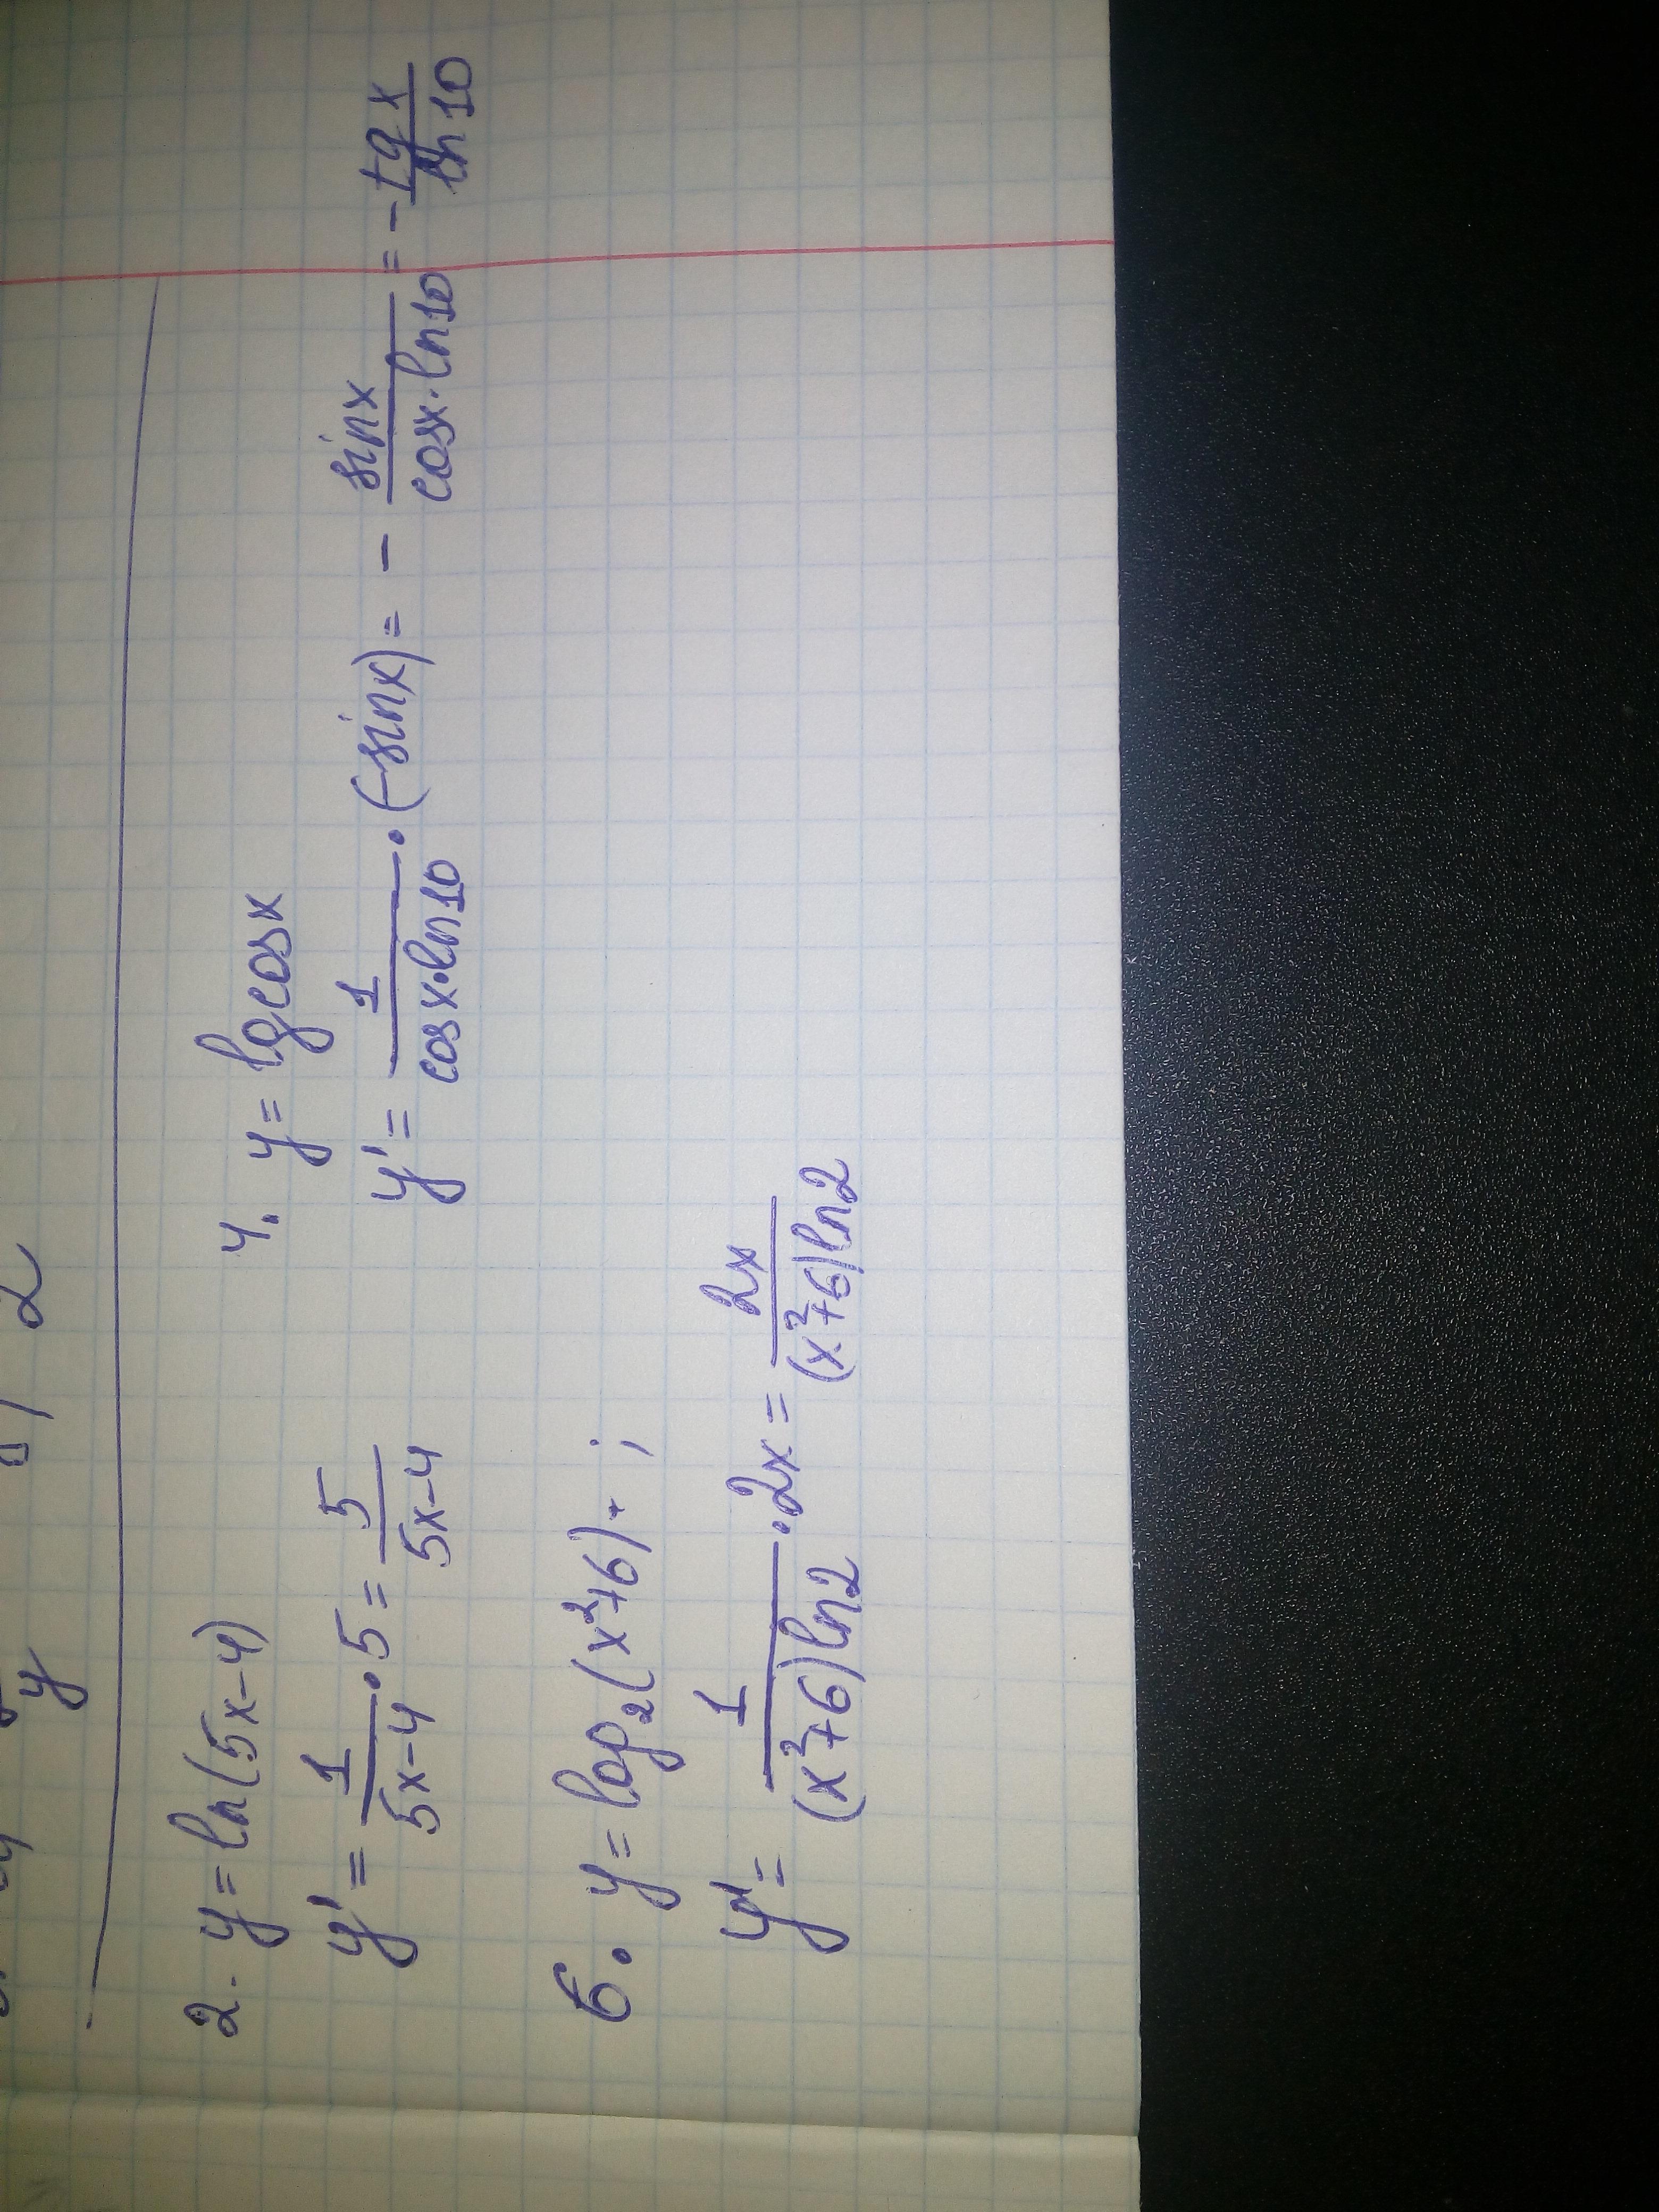 2
y
2. y = ln(5x-4)
y' = 1/(5x-4) · 5 = 5/(5x-4)
4. y = lg cosx
y' = 1/(cosx·ln10) · (-sinx) = - sinx/(cosx·ln10) = - tgx/ln10
6. y = log₂(x²+6) + ;
y' = 1/((x²+6)ln2) · 2x = 2x/((x²+6)ln2)